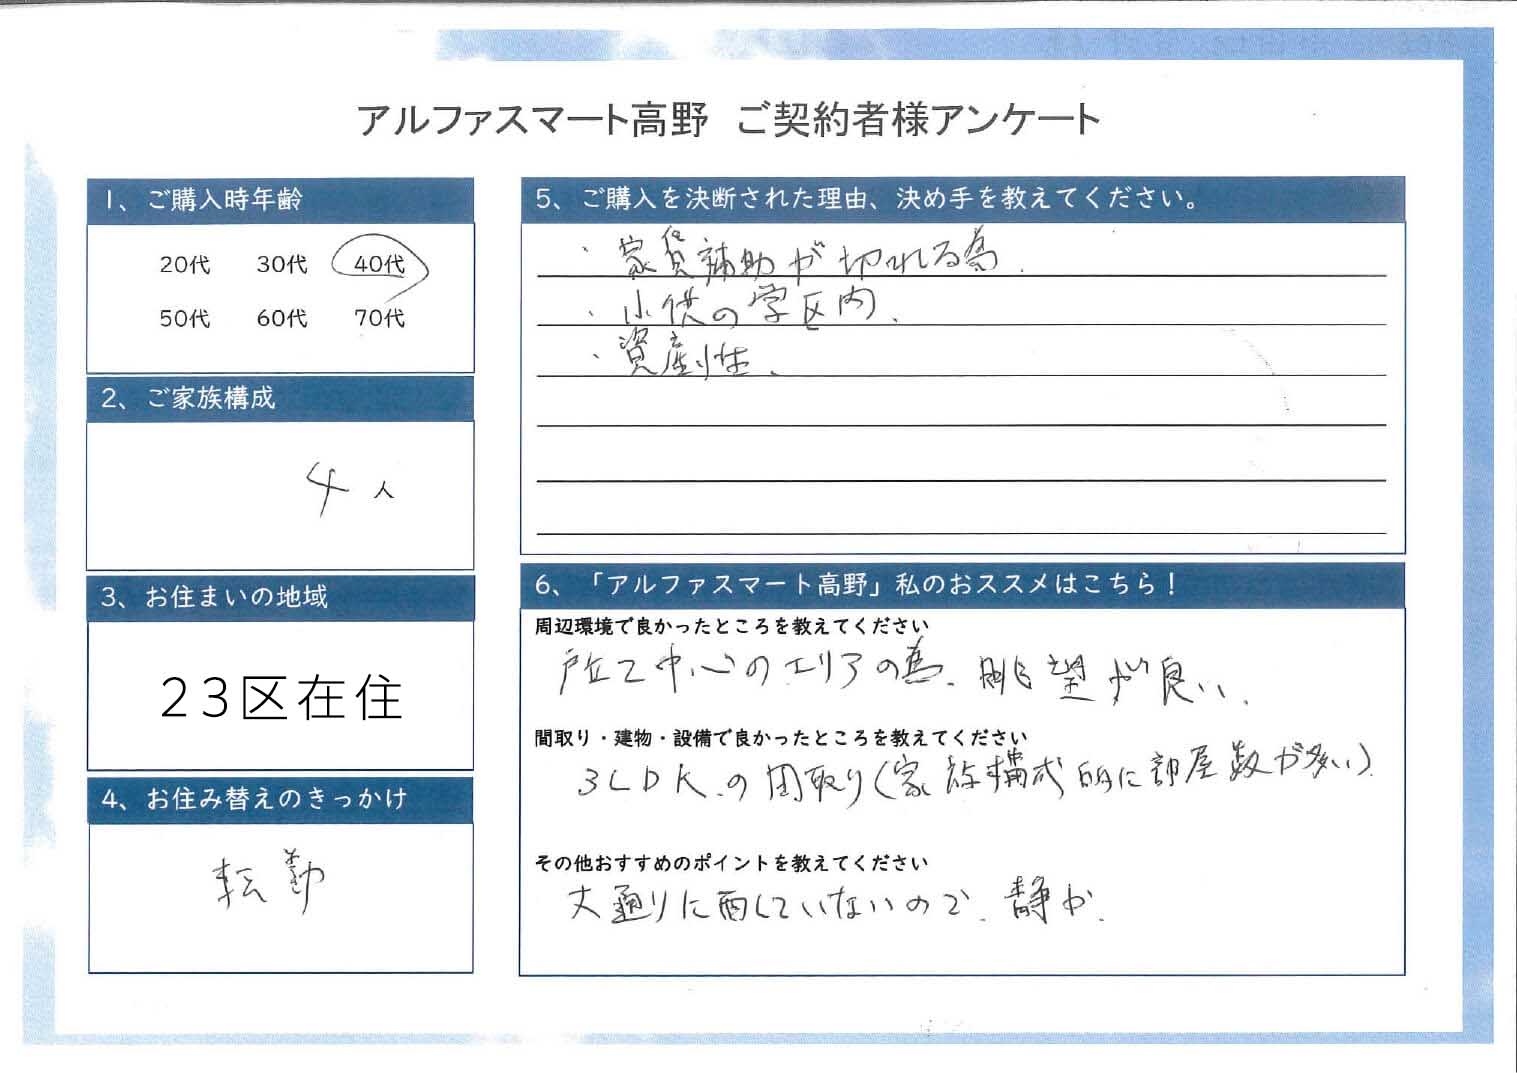 アルファスマート高野 ご契約者様アンケート
1、ご購入時年齢
20代 30代 40代
50代 60代 70代
2、ご家族構成
4人
3、お住まいの地域
23区在住
4、お住み替えのきっかけ
転勤
5、ご購入を決断された理由、決め手を教えてください。
・家賃補助が切れる為.
・小供の学区内.
・資産性.
6、「アルファスマート高野」私のおススメはこちら！
周辺環境で良かったところを教えてください
戸立て中心のエリアの為、眺望が良い.
間取り・建物・設備で良かったところを教えてください
3LDK.の間取り(家族構成的に部屋数が多い)
その他おすすめのポイントを教えてください
大通りに面していないので、静か.